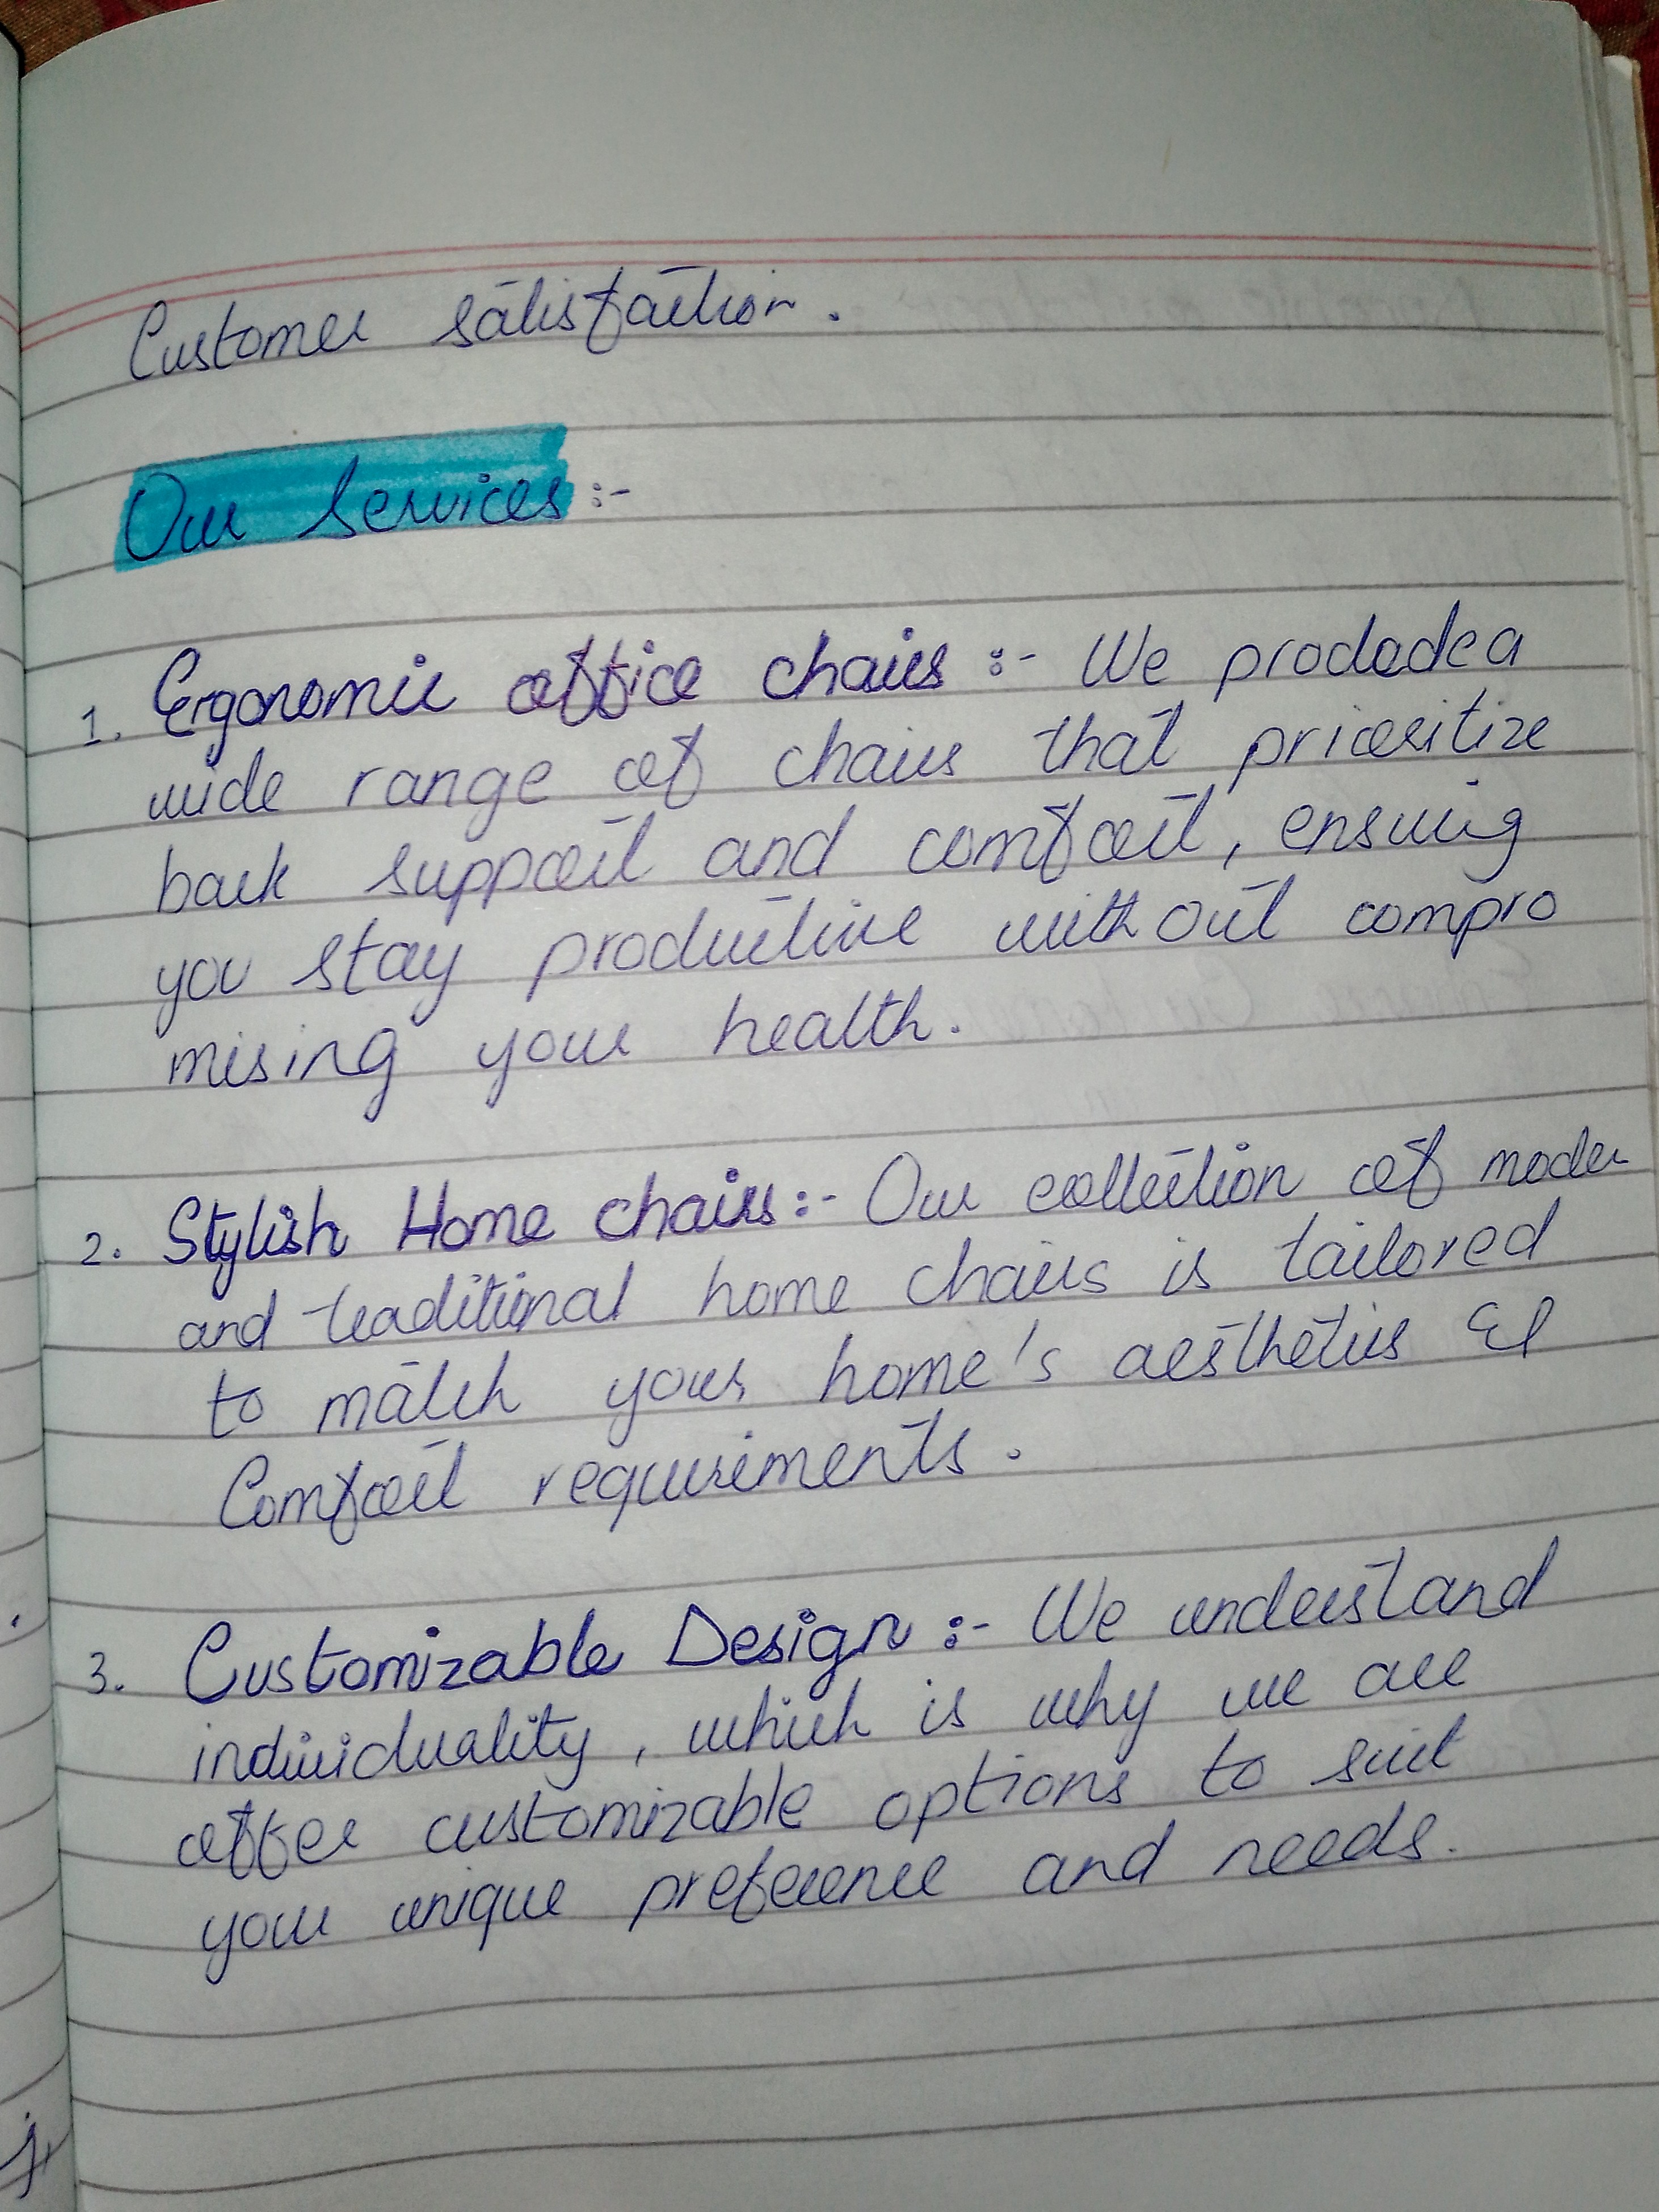 Customer satisfaction.
Our Services :-
1. Ergonomic office chairs :- We prodede a
wide range of chairs that prioritize
back support and comfort, ensuring
you stay productive without compro
mising your health.
2. Stylish Home chairs :- Our collection of moder
and traditional home chairs is tailored
to match your home's aesthetics &
Comfort requirements.
3. Customizable Design :- We understand
individuality, which is why we are
offer customizable options to suit
your unique preference and needs.